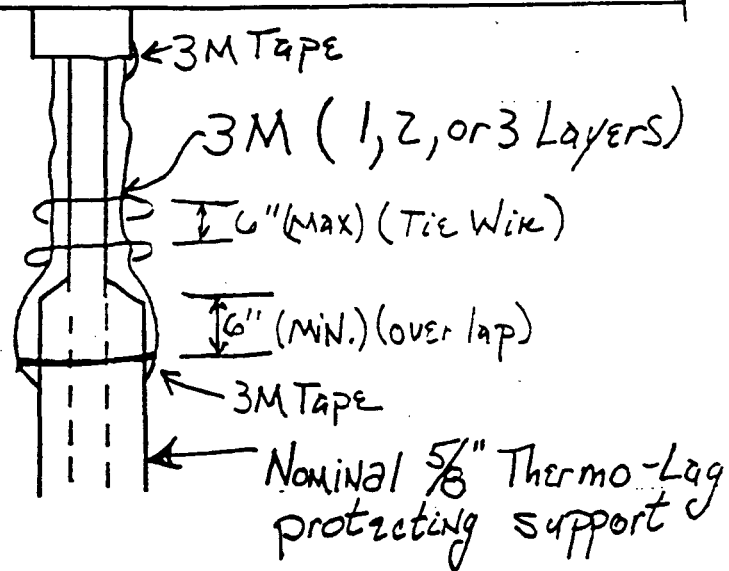 3M Tape
3M (1, 2, or 3 Layers)
6" (Max) (Tie Wire)
6" (Min.) (over lap)
3M Tape
Nominal 5/8" Thermo-Lag
protecting support